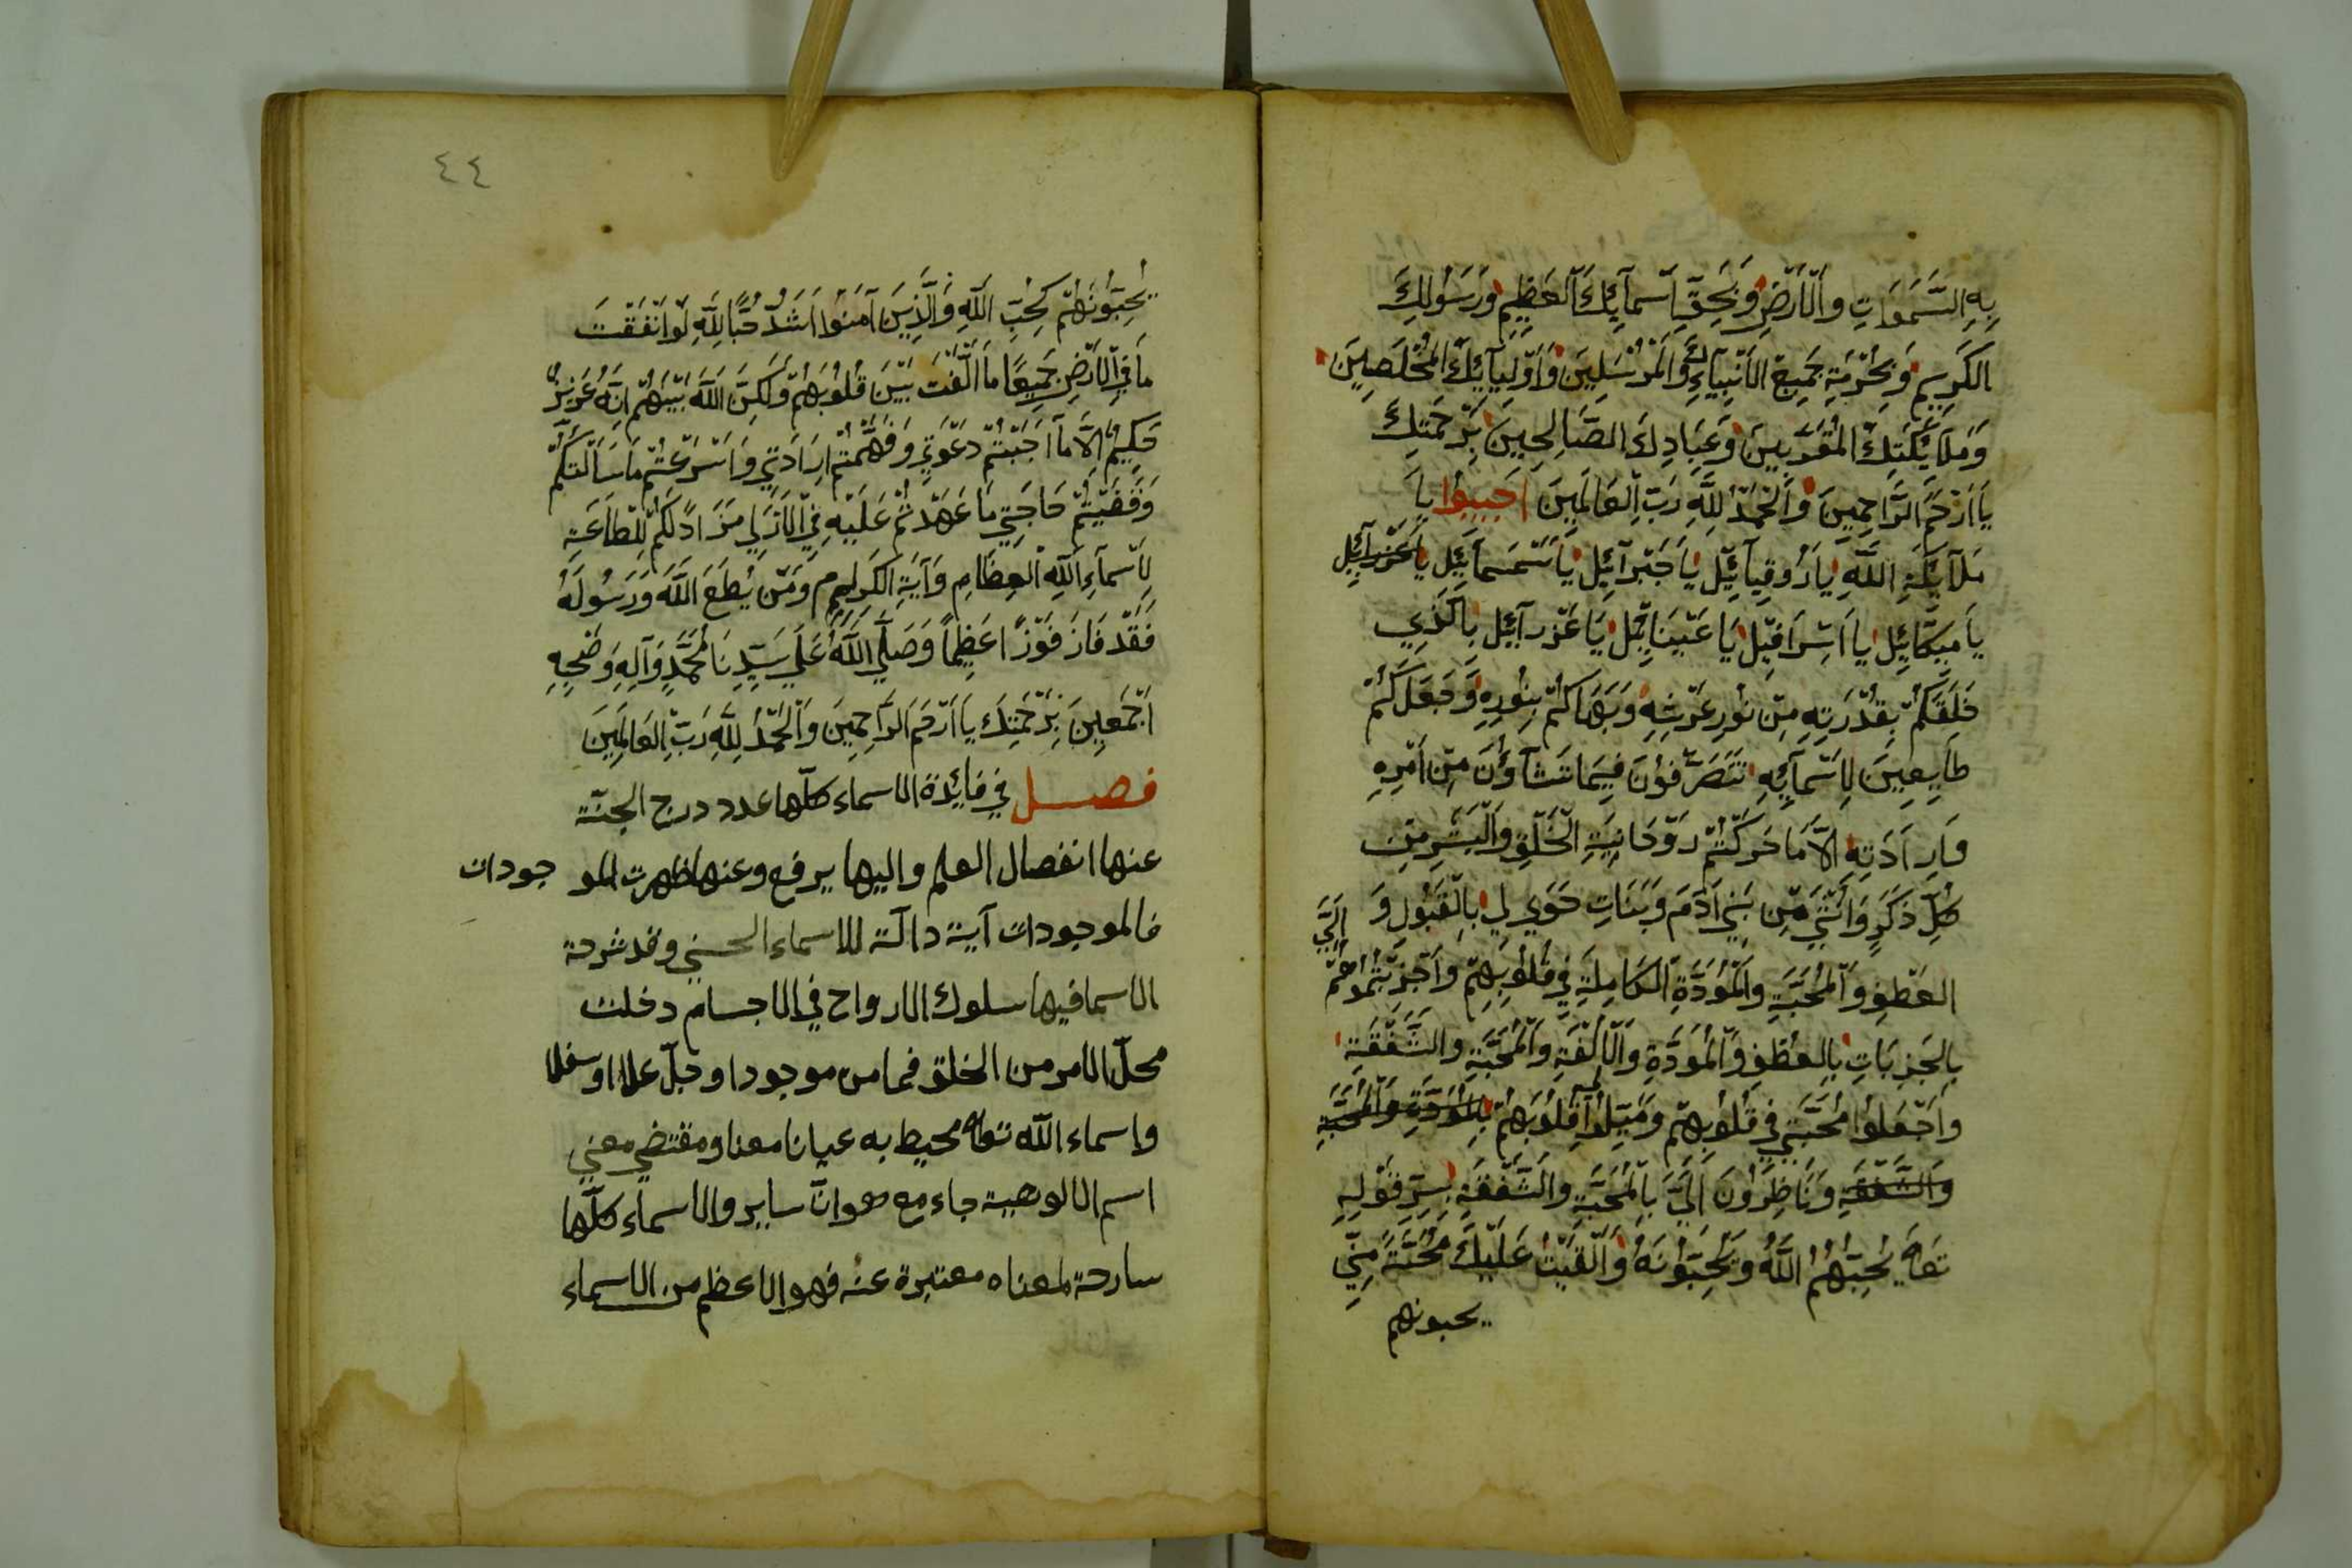 بِهِ السَّمَوَاتِ وَالْأَرْضِ وَبِحَقِّ أَسْمَآئِكَ الْعَظِيمِ وَرَسُولِكَ
الكَرِيمِ وَبِحُرْمَةِ جَمِيعِ الأَنْبِيَآءِ وَالْمُرْسَلِينَ وَأَوْلِيَآئِكَ المُخْلَصِينَ
وَمَلَآئِكَتِكَ المُقَرَّبِينَ وَعِبَادِكَ الصَّالِحِينَ بِرَحْمَتِكَ
يَا أَرْحَمَ الرَّاحِمِينَ وَالْحَمْدُ لِلَّهِ رَبِّ الْعَالَمِينَ اَجِيبُوا يَا
مَلَآئِكَةِ اللَّهِ يَا رُوقِيآئِيل يَا جَبْرَآئِل يَا سَمْسَمآئِيل يَا عَزْرَآئِل
يَا مِيكَآئِل يَا اَسْرَافِيل يَا عَيْنَائِيل يَا عَزْرَآئِل بِالَّذِي
خَلَقَكُمْ بِقُدْرَتِهِ مِنْ نُورِ عَرْشِهِ وَبَهَاكُمْ بِنُورِهِ وَجَعَلَكُمْ
طَائِعِينَ لِاَسْمَآئِهِ تَتَصَرَّفُونَ فِيمَا تَشَآؤُنَ مِنْ اَمْرِهِ
وَاِرَادَتِهِ اِلَّا مَا حَرَكْتُمْ رَوْحَانِيَةِ الْخَلْقِ وَالْبَشَرِ مِنْ
كُلِّ ذَكَرٍ وَاُنْثَى مِنْ بَنِي آدَمَ وَبَنَاتِ حَوَى لِي بِالْقَبُولِ وَ اِلَيَّ
العَطْفِ وَالْمُحَبَّةِ وَالْمَوَدَّةِ الْكَامِلَةِ فِي قُلُوبِهِمْ وَاَجْزَبْتُمُوهُمْ
بِالجَزِبَاتِ بِالعَطْفِ وَالْمَوَدَّةِ وَالْأُلْفَةِ وَالْمُحَبَّةِ وَالشَّفَقَةِ
وَاَجْعَلُوا مُحَبَّتِي فِي قُلُوبِهِمْ وَمَيِّلُوا قُلُوبَهُمْ بِالْمَوَدَّةِ وَالْمُحَبَّةِ
وَالشَّفَقَةِ وَنَاظِرُونَ اِلَيَّ بِالْمُحَبَّةِ وَالشَّفَقَةِ بِسِرِّ قَوْلِهِ
تعالى يُحِبُّهُمُ اللَّهُ وَيُحِبُّونَهُ وَاَلْقَيْتُ عَلَيْكَ مُحَبَّةً مِنِّي
يحبونهم
٤٤
يُحِبُّونَهُمْ كَحُبِّ اللَّهِ وَالَّذِينَ آمَنُوا اَشَدُّ حُبًّا لِلَّهِ لَوْ اَنْفَقْتَ
مَا فِي الْأَرْضِ جَمِيعًا مَا اَلَّفْتَ بَيْنَ قُلُوبِهِمْ وَلَكِنَّ اللَّهَ بَيْنَهُمْ اِنَّهُ عَزِيزٌ
حَكِيمٌ اِلَّا مَا اَجَبْتُمْ دَعْوَتِي وَفَهَّمْتُمْ اِرَادَتِي وَاَسْرَعْتُمْ مَا سَاَلْتُكُمْ
وَقَضَيْتُمْ حَاجَتِي مَا عَهَدْتُمْ عَلَيْهِ فِي الْاَزَلِ مَزَادً لَكُمْ لِلطَاعَةِ
لِأَسْمَآءِ اللَّهِ الْعِظَامِ وَآيَةِ الكَرِيمِ وَمَنْ يُطِعَ اللَّهَ وَرَسُولَهُ
فَقَدْ فَازَ فَوْزًا عَظِيمًا وَصَلَّى اللَّهُ عَلَى سَيِّدِنَا مُحَمَّدٍ وَآلِهِ وَصَحْبِهِ
اَجْمَعِينَ بِرَحْمَتِكَ يَا اَرْحَمَ الرَّاحِمِينَ وَالْحَمْدُ لِلَّهِ رَبِّ الْعَالَمِينَ
فصل في فائدة الاسماء كلّها عدد درج الجنّة
عنها انفصال العلم واليها يرفع وعنها ظهرت المو جودات
فالموجودات آية دالّة للاسماء الحسنى وقد شرحة
الاسما فيها سلوك الارواح في الاجسام دخلت
محلّ الامر من الخلق فما من موجود اوجلّ علا او سفلا
واسماء اللّه تعالى محيط به عيانا معنا ومقتضي معنى
اسم الالوهية جاء مع هو انّ ساير والاسماء كلّها
سارحة لمعناه معتبرة عنه فهو الاعظم من الاسماء